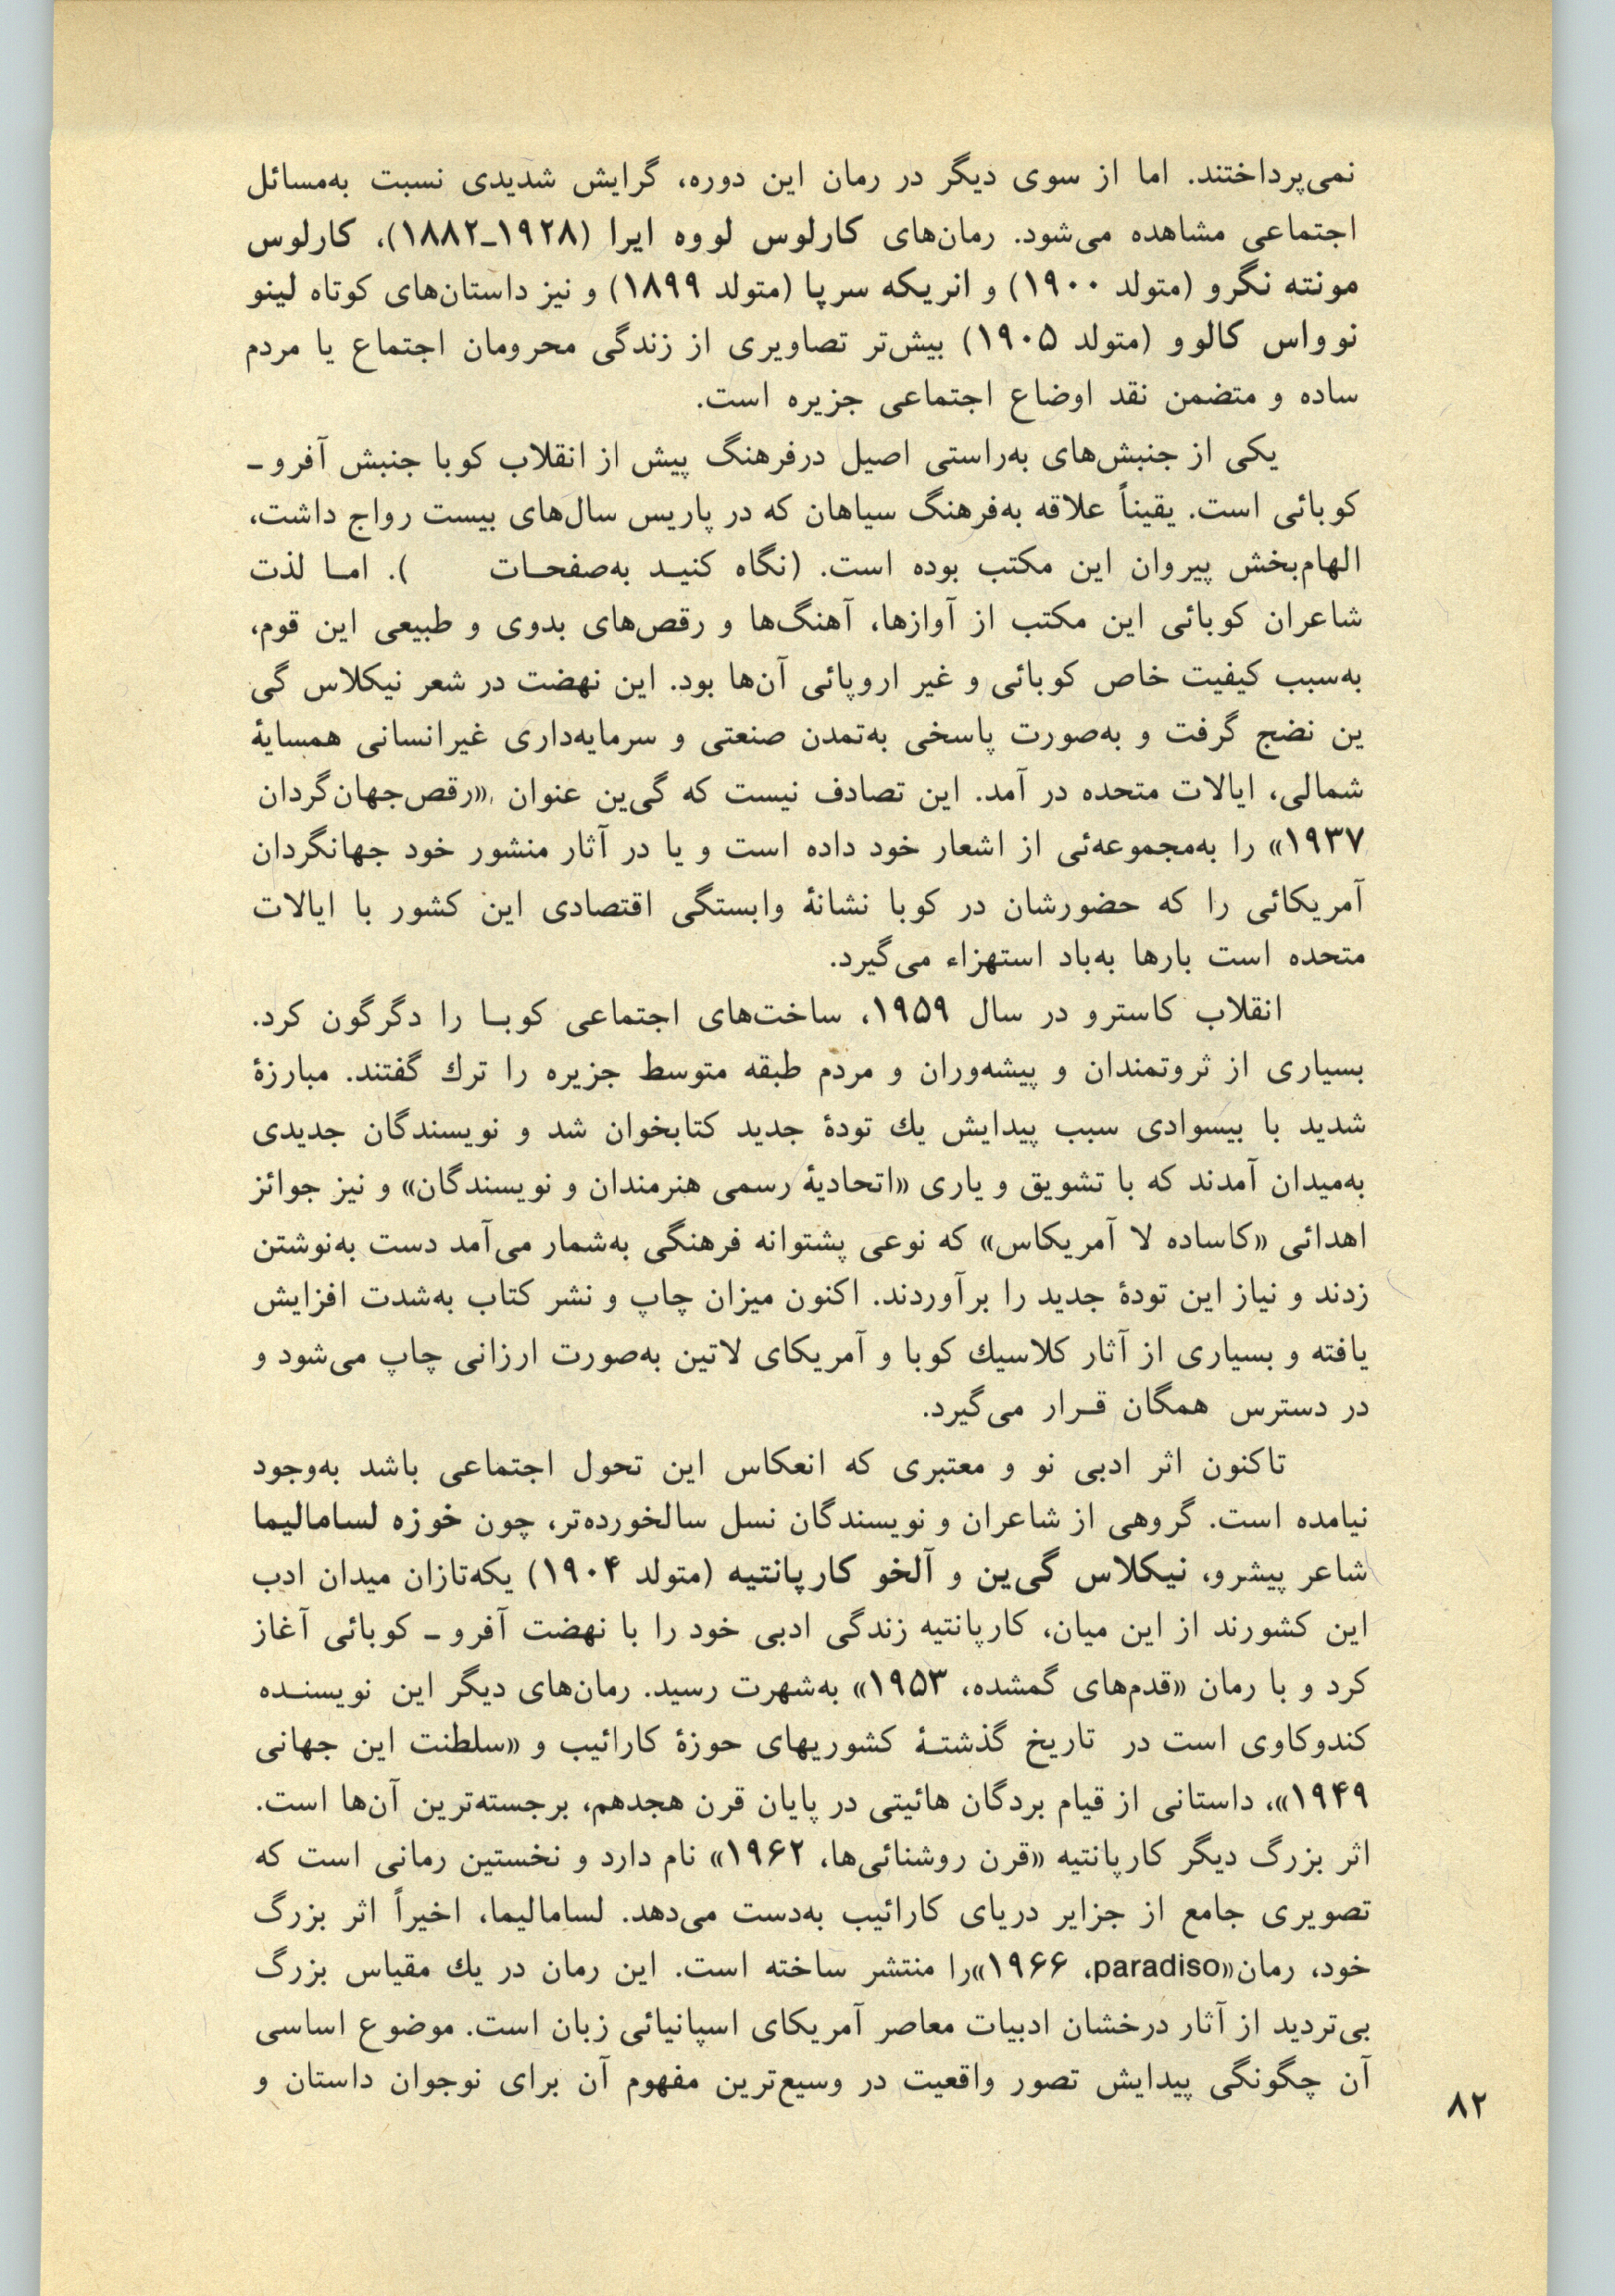 نمی‌پرداختند. اما از سوی دیگر در رمان این دوره، گرایش شدیدی نسبت به‌مسائل
اجتماعی مشاهده می‌شود. رمان‌های کارلوس لووه ایرا (۱۹۲۸ـ۱۸۸۲)، کارلوس
مونته نگرو (متولد ۱۹۰۰) و انریکه سرپا (متولد ۱۸۹۹) و نیز داستان‌های کوتاه لینو
نوواس کالوو (متولد ۱۹۰۵) بیش‌تر تصاویری از زندگی محرومان اجتماع یا مردم
ساده و متضمن نقد اوضاع اجتماعی جزیره است.
یکی از جنبش‌های به‌راستی اصیل درفرهنگ پیش از انقلاب کوبا جنبش آفرو ـ
کوبائی است. یقیناً علاقه به‌فرهنگ سیاهان که در پاریس سال‌های بیست رواج داشت،
الهام‌بخش پیروان این مکتب بوده است. (نگاه کنیـد به‌صفحـات      ). امـا لذت
شاعران کوبائی این مکتب از آوازها، آهنگ‌ها و رقص‌های بدوی و طبیعی این قوم،
به‌سبب کیفیت خاص کوبائی و غیر اروپائی آن‌ها بود. این نهضت در شعر نیکلاس گی
ین نضج گرفت و به‌صورت پاسخی به‌تمدن صنعتی و سرمایه‌داری غیرانسانی همسایهٔ
شمالی، ایالات متحده در آمد. این تصادف نیست که گی‌ین عنوان «رقص‌جهان‌گردان
۱۹۳۷» را به‌مجموعه‌ئی از اشعار خود داده است و یا در آثار منشور خود جهانگردان
آمریکائی را که حضورشان در کوبا نشانهٔ وابستگی اقتصادی این کشور با ایالات
متحده است بارها به‌باد استهزاء می‌گیرد.
انقلاب کاسترو در سال ۱۹۵۹، ساخت‌های اجتماعی کوبـا را دگرگون کرد.
بسیاری از ثروتمندان و پیشه‌وران و مردم طبقه متوسط جزیره را ترك گفتند. مبارزهٔ
شدید با بیسوادی سبب پیدایش یك تودهٔ جدید کتابخوان شد و نویسندگان جدیدی
به‌میدان آمدند که با تشویق و یاری «اتحادیهٔ رسمی هنرمندان و نویسندگان» و نیز جوائز
اهدائی «کاساده لا آمریکاس» که نوعی پشتوانه فرهنگی به‌شمار می‌آمد دست به‌نوشتن
زدند و نیاز این تودهٔ جدید را برآوردند. اکنون میزان چاپ و نشر کتاب به‌شدت افزایش
یافته و بسیاری از آثار کلاسیك کوبا و آمریکای لاتین به‌صورت ارزانی چاپ می‌شود و
در دسترس همگان قـرار می‌گیرد.
تاکنون اثر ادبی نو و معتبری که انعکاس این تحول اجتماعی باشد به‌وجود
نیامده است. گروهی از شاعران و نویسندگان نسل سالخورده‌تر، چون خوزه لسامالیما
شاعر پیشرو، نیکلاس گی‌ین و آلخو کارپانتیه (متولد ۱۹۰۴) یکه‌تازان میدان ادب
این کشورند از این میان، کارپانتیه زندگی ادبی خود را با نهضت آفرو ـ کوبائی آغاز
کرد و با رمان «قدم‌های گمشده، ۱۹۵۳» به‌شهرت رسید. رمان‌های دیگر این نویسنـده
کندوکاوی است در تاریخ گذشتـهٔ کشوریهای حوزهٔ کارائیب و «سلطنت این جهانی
۱۹۴۹»، داستانی از قیام بردگان هائیتی در پایان قرن هجدهم، برجسته‌ترین آن‌ها است.
اثر بزرگ دیگر کارپانتیه «قرن روشنائی‌ها، ۱۹۶۲» نام دارد و نخستین رمانی است که
تصویری جامع از جزایر دریای کارائیب به‌دست می‌دهد. لسامالیما، اخیراً اثر بزرگ
خود، رمان«paradiso، ۱۹۶۶»را منتشر ساخته است. این رمان در یك مقیاس بزرگ
بی‌تردید از آثار درخشان ادبیات معاصر آمریکای اسپانیائی زبان است. موضوع اساسی
آن چگونگی پیدایش تصور واقعیت در وسیع‌ترین مفهوم آن برای نوجوان داستان و
۸۲